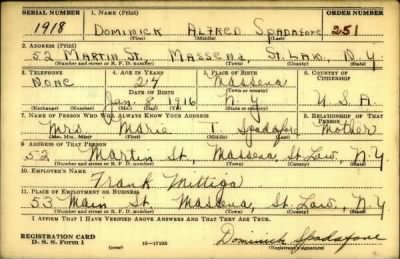 SERIAL NUMBER 1. NAME (Print) ORDER NUMBER
1918 DOMINICK ALFRED SPADAFORE 251
(First) (Middle) (Last)
2. ADDRESS (Print)
52 MARTIN ST. MASSENA, ST. LAW. N.Y.
(Number and street or R. F. D. number) (Town) (County) (State)
3. TELEPHONE 4. AGE IN YEARS 5. PLACE OF BIRTH 6. COUNTRY OF CITIZENSHIP
None 24 Massena
DATE OF BIRTH (Town or county)
Jan. 8, 1916 N.Y. U.S.A.
(Exchange) (Number) (Mo.) (Day) (Yr.) (State or country)
7. NAME OF PERSON WHO WILL ALWAYS KNOW YOUR ADDRESS 8. RELATIONSHIP OF THAT PERSON
Mrs. Marie T. Spadafore Mother
(Mr., Mrs., Miss) (First) (Middle) (Last)
9. ADDRESS OF THAT PERSON
52 Martin St., Massena, St. Law., N.Y.
(Number and street or R. F. D. number) (Town) (County) (State)
10. EMPLOYER'S NAME
Frank Mittiga
11. PLACE OF EMPLOYMENT OR BUSINESS
53 Main St. Massena, St. Law., N.Y.
(Number and street or R. F. D. number) (Town) (County) (State)
I AFFIRM THAT I HAVE VERIFIED ABOVE ANSWERS AND THAT THEY ARE TRUE.
REGISTRATION CARD
D. S. S. Form 1 (over) 16—17105 Dominick Spadafore
(Registrant's signature)